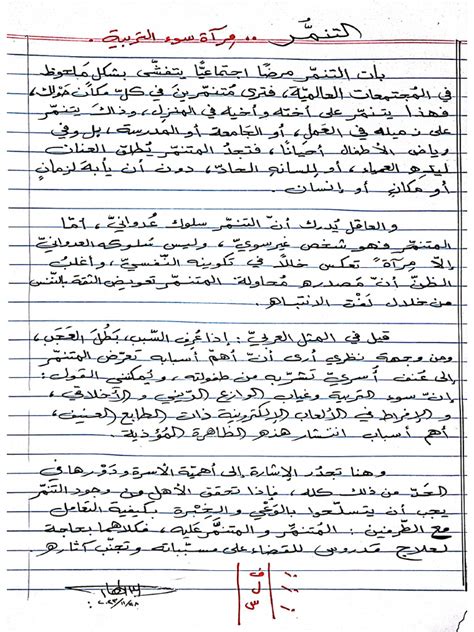 التنمُّر .. مِرآة سوء التربية .
بات التنمّر مرضًا اجتماعيًّا يتفشّى بشكل مَلحوظ
في المُجتمعات العالميّة، فترى مُتنمّرين في كلّ مكان حَوْلك،
فهذا يتنمّر على أخته وأخيه في المنزل، وذاك يتنمّر
على زميله في العَمل، أو الجَامعة أو المدرسة، بل وفي
رياض الأطفال أحيانًا، فتجدُ المتنمّر يُطلق العنان
ليده العمياء، أو للسانه الحادّ، دون أن يأبهَ لزمانٍ
أو مكانٍ أو إنسان.
والعاقل يُدرك أنّ التنمّر سلوك عُدوانيّ، أمّا
المتنمّر فهو شخص غير سويّ، وليس سُلوكه العدوانيّ
إلّا مِرآةً تعكس خللًا في تكوينه النّفسيّ، وأغلبُ
الظنّ أنّ مَصدره مُحاولة المتنمّر تعويض الثقة بالنّفس
من خلال لَفْت الانتباه.
قيل في المثل العربيّ: إذا عُرف السّبب، بَطُلَ العَجَب،
ومن وجهة نظري أرى أنّ أهمّ أسبابه تعرّض المتنمّر
إلى عُنف أسريّ تشرّبه من طفولته، ويُمكنني القول:
إنّ سوء التربية وغياب الوازع الدّيني و الأخلاقي،
و الإفراط في الألعاب الإلكترونية ذات الطابع العنيف،
أهم أسباب انتشار هذه الظّاهرة المُؤذية.
وهنا تجدُر الإشارة إلى أهميّة الأسرة ودَوْرها في
الحَدّ من ذلك كله، فإذا تحقق الأهل من وجود التّنمّر
يجب أن يتسلّحوا بالوَعْي و الخِبْرة بكيفية التّعامل
مع الطّرفين: المُتنمّر و المُتنمَّر عَليه، فكلاهما بحاجة
لعلاج مَدروس للقضاء على مسبّباته وتجنّب آثاره.
١٠٠ | ف
١٠٠ | ل
١٠٠ | س